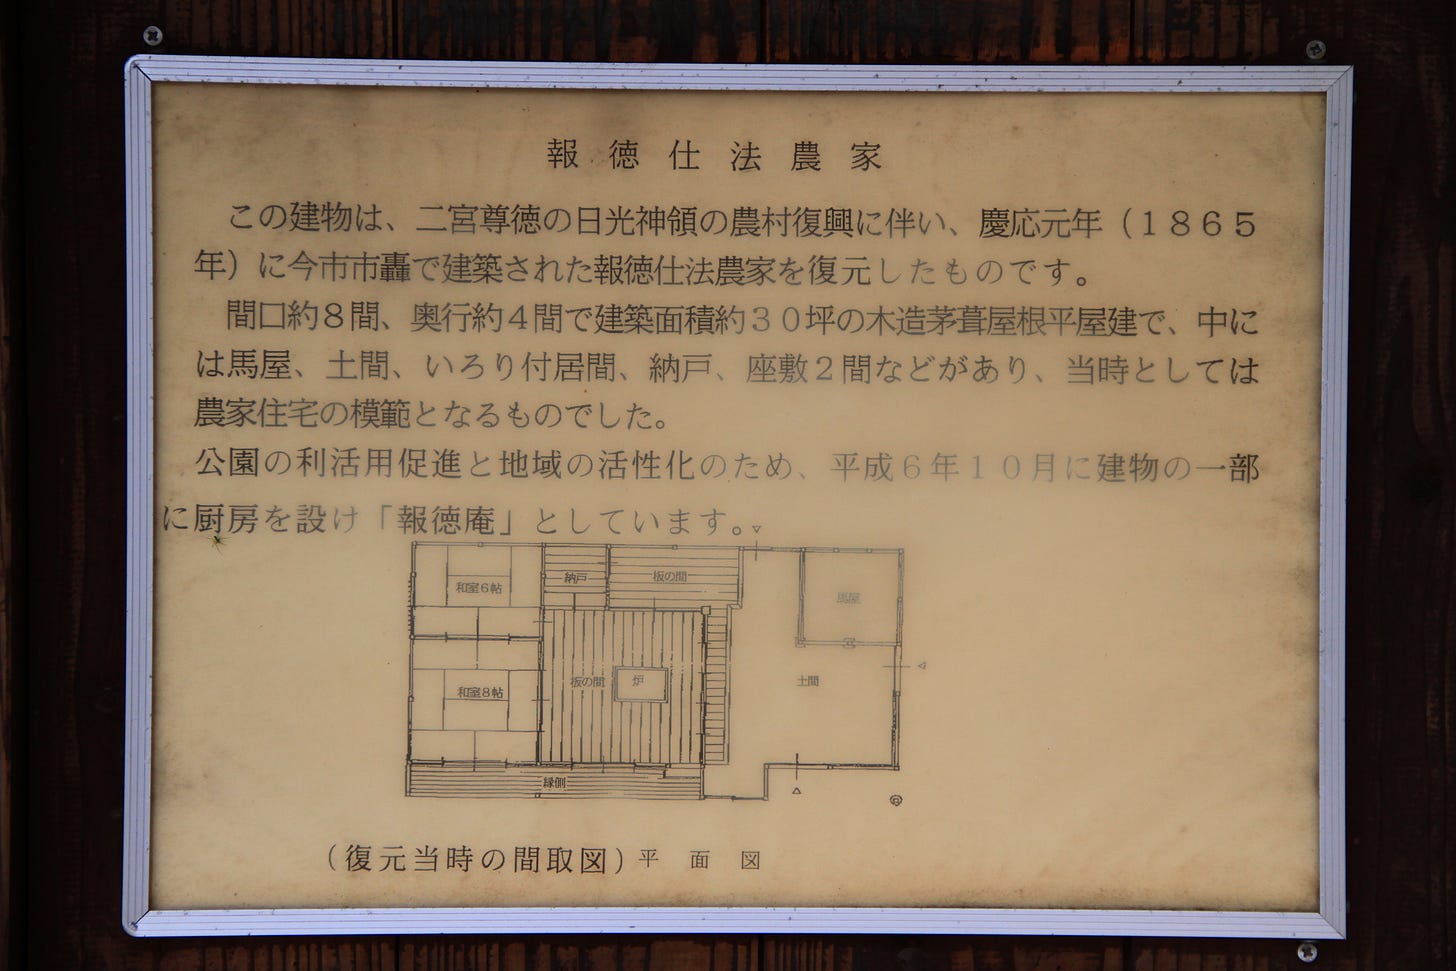 報徳仕法農家
この建物は、二宮尊徳の日光神領の農村復興に伴い、慶応元年（１８６５
年）に今市市轟で建築された報徳仕法農家を復元したものです。
間口約８間、奥行約４間で建築面積約３０坪の木造茅葺屋根平屋建で、中に
は馬屋、土間、いろり付居間、納戸、座敷２間などがあり、当時としては
農家住宅の模範となるものでした。
公園の利活用促進と地域の活性化のため、平成６年１０月に建物の一部
に厨房を設け「報徳庵」としています。
和室６帖
納戸
板の間
馬屋
和室８帖
板の間
炉
土間
縁側
（復元当時の間取図）平面図